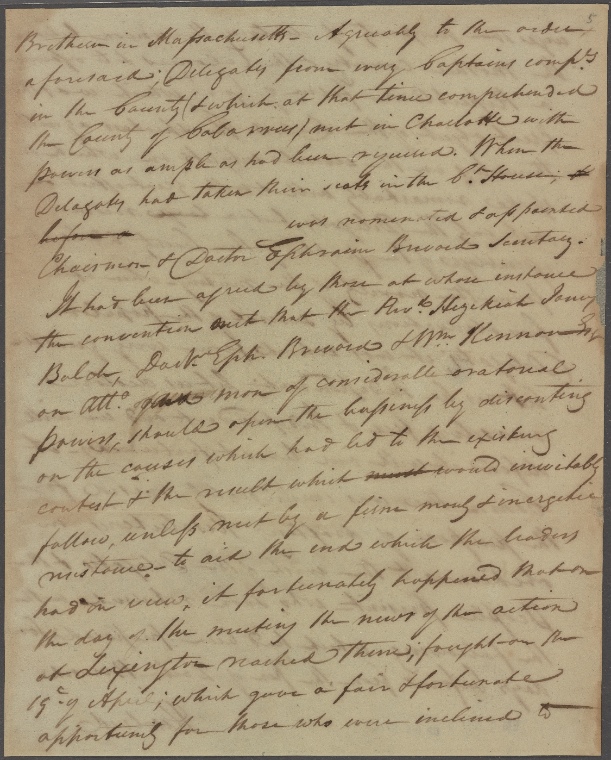 5
Brethren in Massachusetts - Agreeably to the order
aforesaid; Delegates from every Captains comp.ys
in the County (& which at that time comprehended
the County of Cabarrus) met in Charlotte with
powers as ample as had been required. When the
Delagates had taken their seats in the Ct. House;
before a was nominated & appointed
Chairmon, & Doctor Ephraim Brevard Secretary.
It had been agreed by those at whose instance
the convention met that the Revd. Hezekiah James
Balch, Doctr. Eph. Brevard & Wm. Kennon Esq
an Atto. men of considerable oratorial
powers, should open the bussiness by discanting
on the causes which had led to the existing
contest & the result which must would inevitably
follow, unless met by a firm manly & inergetic
resistance - to aid the end which the leaders
had in view, it fortunately happened that on
the day of the meeting the news of the action
at Lexington reached them; fought on the
19th of April; which gave a fair & fortunate
opportunity for those who were inclined to